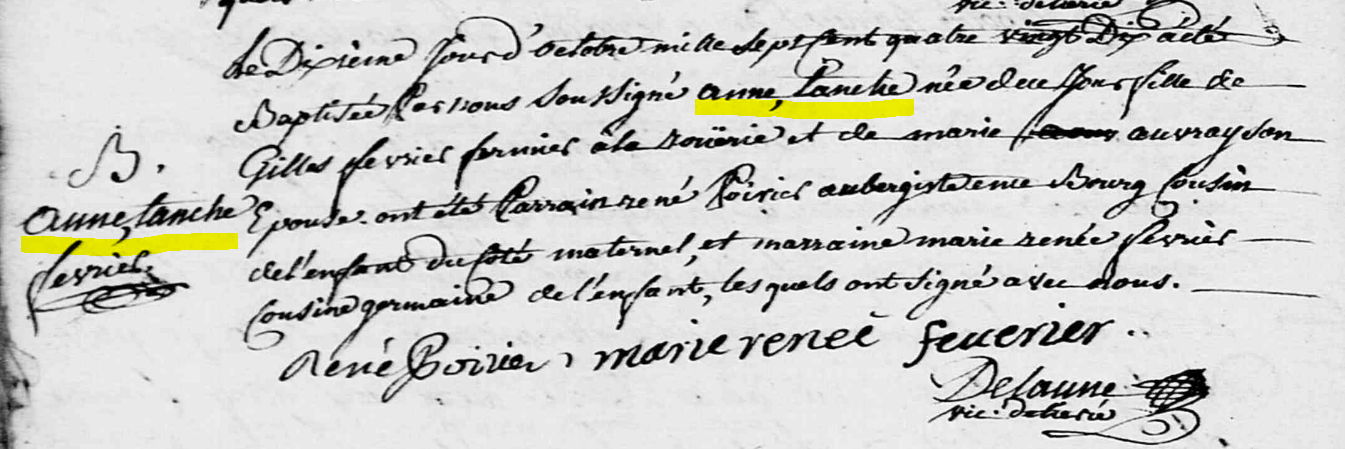 vic: de herie
Le Dixième Jour d'octobre mille sept cent quatre vingt Dix a été
Baptisée Par nous Soussigné anne, tanche née de ce Jour fille de
Gilles fevrier fermier à la roüerie et de marie auvray Son
Epouse. ont été Parrain rené Poirier aubergiste en ce Bourg Cousin
de l'enfant du Côté maternel, et marraine marie renée fevrier
Cousine germaine de l'enfant, les quels ont signé avec nous.
B.
anne, tanche
fevrier.
René Poirier, marie reneé feuerier.
Delaune
vic: de herié